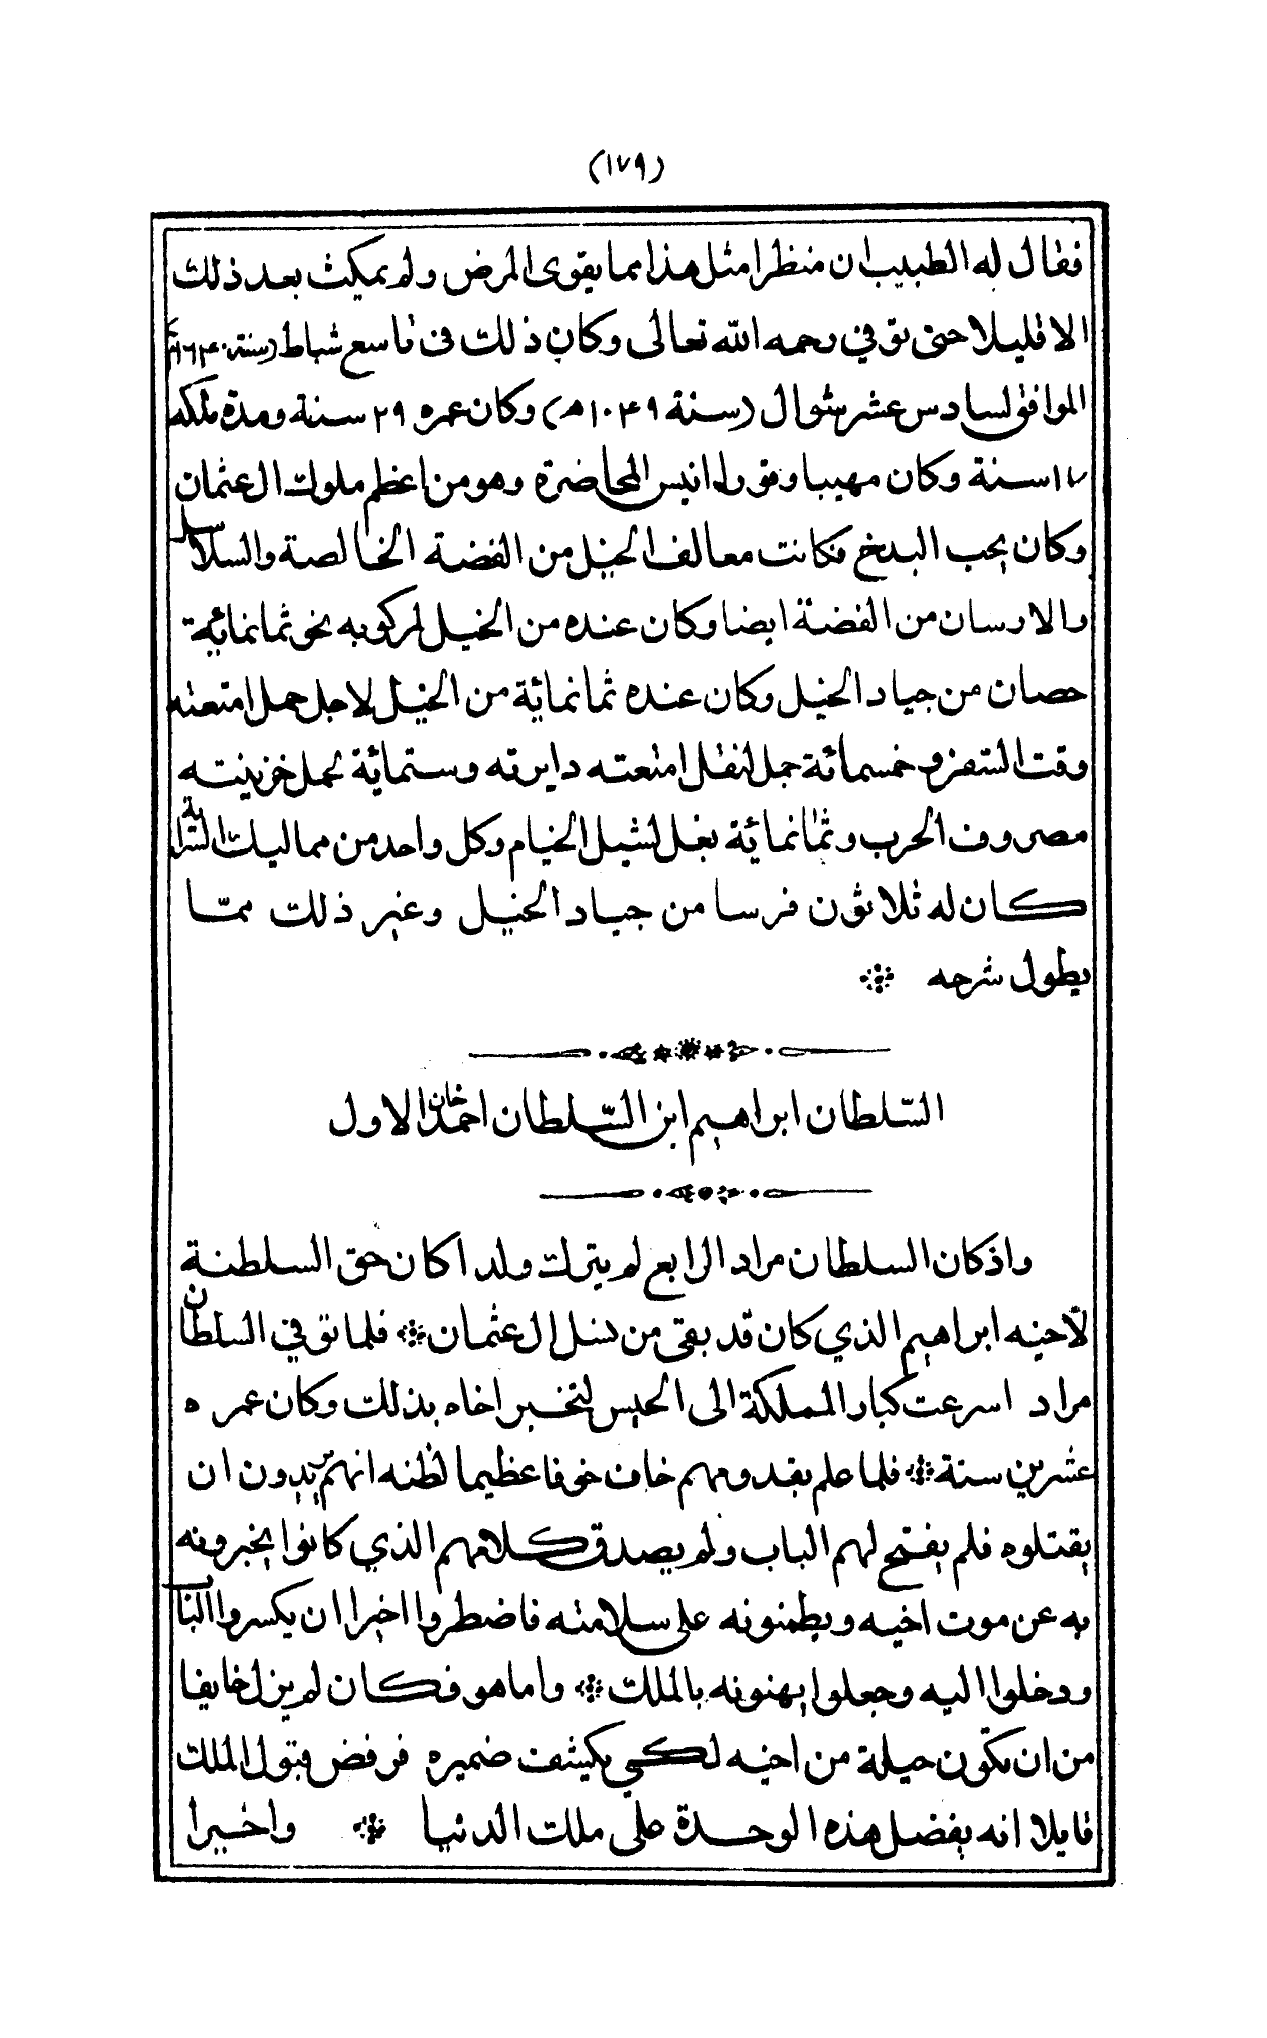 (١٧٩)
فقال له الطبيب ان منظرا مثل هذا مما يقوى المرض ولم يمكث بعد ذلك
الا قليلا حتى توفي رحمه الله تعالى وكان ذلك فى تاسع شباط (سنة ١٦٤٠م)
الموافق لسادس عشر شوال (سنة ١٠٤٩هـ) وكان عمره ٢٩ سنة ومدة ملكه
١٧ سنة وكان مهيبا وقورا انيس المحاضرة وهو من اعظم ملوك ال عثمان
وكان يحب البدخ فكانت معالف الخيل من الفضة الخالصة والسلاسل
والارسان من الفضة ايضا وكان عنده من الخيل لركوبه نحو ثمانمائة
حصان من جياد الخيل وكان عنده ثمانمائة من الخيل لاجل حمل امتعته
وقت السفر وخمسمائة جمل لنقل امتعته دايرته وستمائة لحمل خزينته
مصروف الحرب وثمانمائة بغل لشيل الخيام وكل واحد من مماليك السراية
كان له ثلاثون فرسا من جياد الخيل وغير ذلك ممّا
يطول شرحه
السّلطان ابراهيم ابن السّلطان احمد خان الاول
واذ كان السلطان مراد الرابع لم يترك ولدا كان حق السلطنة
لأخيه ابراهيم الذي كان قد بقى من نسل ال عثمان فلما توفي السلطان
مراد اسرعت كبار المملكة الى الحبس لتخبر اخاه بذلك وكان عمره
عشرين سنة فلما علم بقدومهم خاف خوفا عظيما لظنه انهم يريدون ان
يقتلوه فلم يفتح لهم الباب ولم يصدق كلامهم الذي كانوا يخبرونه
به عن موت اخيه ويطمنونه على سلامته فاضطروا اخيرا ان يكسروا الباب
ودخلوا اليه وجعلوا يهنونه بالملك واما هو فكان لم يزل خايفا
من ان تكون حيلة من اخيه لكي يكشف ضميره فرفض قبول الملك
قايلا انه يفضل هذه الوحدة على ملك الدنيا واخيرا